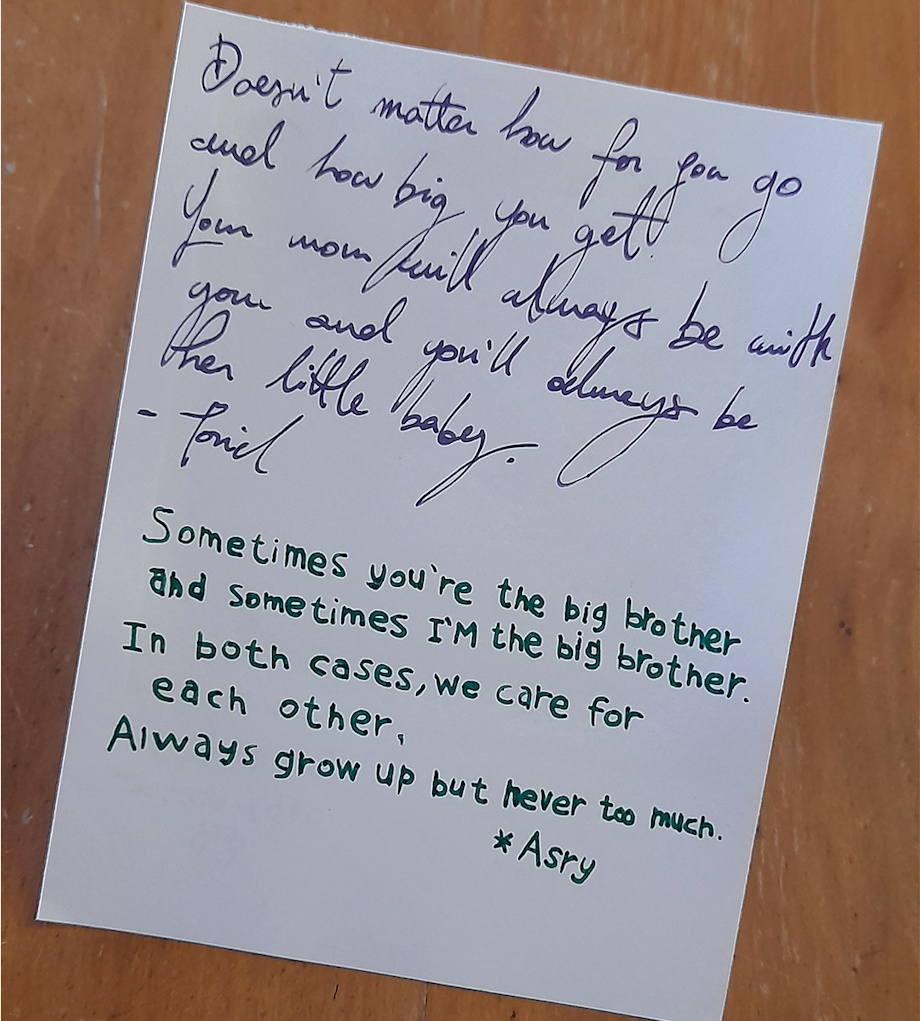 Doesn't matter how far you go
and how big you get!
Your mom will always be with
you and you'll always be
her little baby.
-
Sometimes you're the big brother
and sometimes I'M the big brother.
In both cases, we care for
each other.
Always grow up but never too much.
*Asry